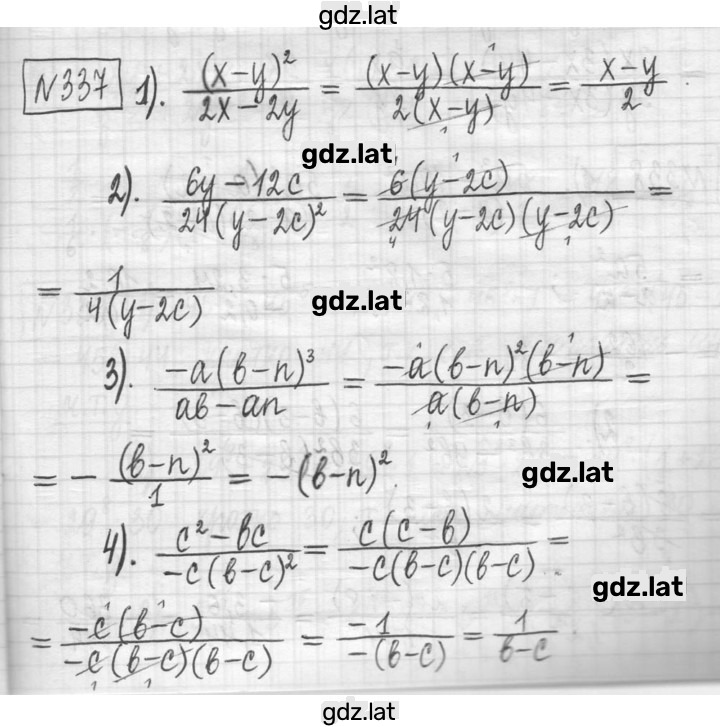 gdz.lat
N337 1). (x-y)²/(2x-2y) = (x-y)(x-y)/(2(x-y)) = (x-y)/2.
gdz.lat
2). (6y-12c)/(24(y-2c)²) = 6(y-2c)/(24(y-2c)(y-2c)) =
= 1/(4(y-2c))
gdz.lat
3). (-a(в-n)³)/(aв-an) = (-a(в-n)²(в-n))/(a(в-n)) =
= - (в-n)²/1 = -(в-n)².
gdz.lat
4). (c²-вc)/(-c(в-c)²) = c(c-в)/(-c(в-c)(в-c)) =
gdz.lat
= (-c(в-c))/(-c(в-c)(в-c)) = -1/(-(в-c)) = 1/(в-c).
gdz.lat